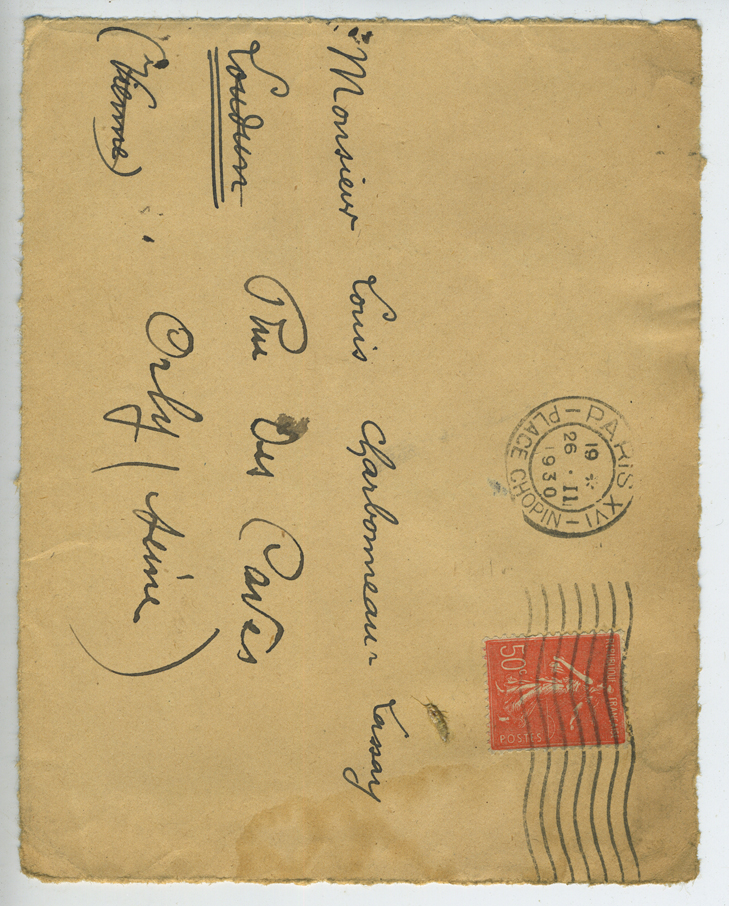 PARIS XVI
19 *
26 · II
1930
PLACE CHOPIN
REPUBLIQUE FRANÇAISE
50c
POSTES
Monsieur Louis Charbonneau-Lassay
Loudun Rue Des Caves
(Vienne) Orly (Seine)